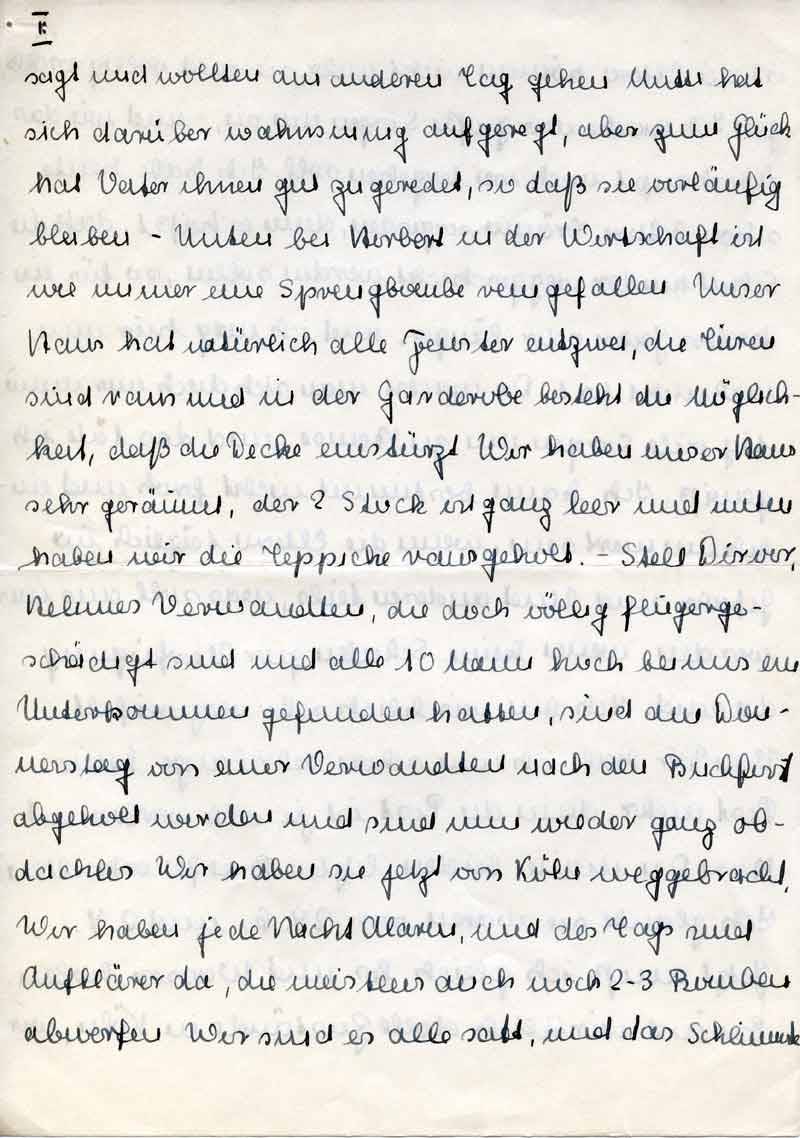 II
sagt und wollten am anderen Tag gehen Mutti hat
sich darüber wahnsinnig aufgeregt, aber zum Glück
hat Vater ihnen gut zugeredet, so daß sie vorläufig
bleiben - Unten bei Herbert in der Wirtschaft ist
wie immer eine Sprengbombe reingefallen Unser
Haus hat natürlich alle Fenster entzwei, die Türen
sind raus und in der Garderobe besteht die Möglich-
keit, daß die Decke einstürzt Wir haben unser Haus
sehr geräumt, der 2 Stock ist ganz leer und unten
haben wir die Teppiche rausgeholt. - Stell Dir vor,
Verwandten, die doch völlig fliegerge-
schädigt sind und alle 10 Mann hoch bei uns ein
Unterkommen gefunden hatten, sind am Don-
nerstag von einer Verwandten nach den
abgeholt worden und sind nun wieder ganz ob-
dachlos Wir haben sie jetzt von Köln weggebracht.
Wir haben jede Nacht Alarm, und des Tags sind
Aufklärer da, die meistens auch noch 2-3 Bomben
abwerfen Wir sind es alle satt, und das Schlimmste